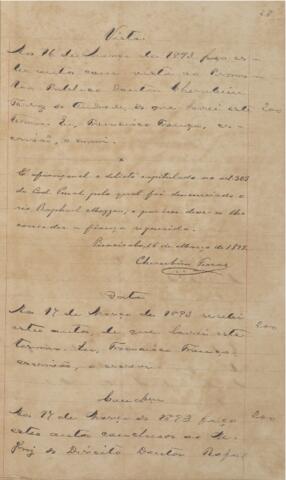 Vista
Aos 16 de Março de 1893 faço es-
tes autos com vista ao Promo-
tor Publico Doutor Cherubim
Ferraz de Andrade, do que lavrei este
termo. Eu, Francisco França, es-
crivão, o escrevi.
200
É afiançavel o delicto capitulado no art 303
do Cod. Penal pelo qual foi denunciado o
réo Raphael, e por isso deve-se lhe
conceder a fiança requerida.
Piracicaba, 16 de Março de 1893.
Cherubim Ferraz
Data
Aos 17 de Março de 1893 recebi
estes autos, do que lavrei este
termo. Eu, Francisco França,
escrivão, o escrevi.
200
Aos 17 de Março de 1893 faço
estes autos conclusos ao
Juiz de Direito Doutor Rafael
200